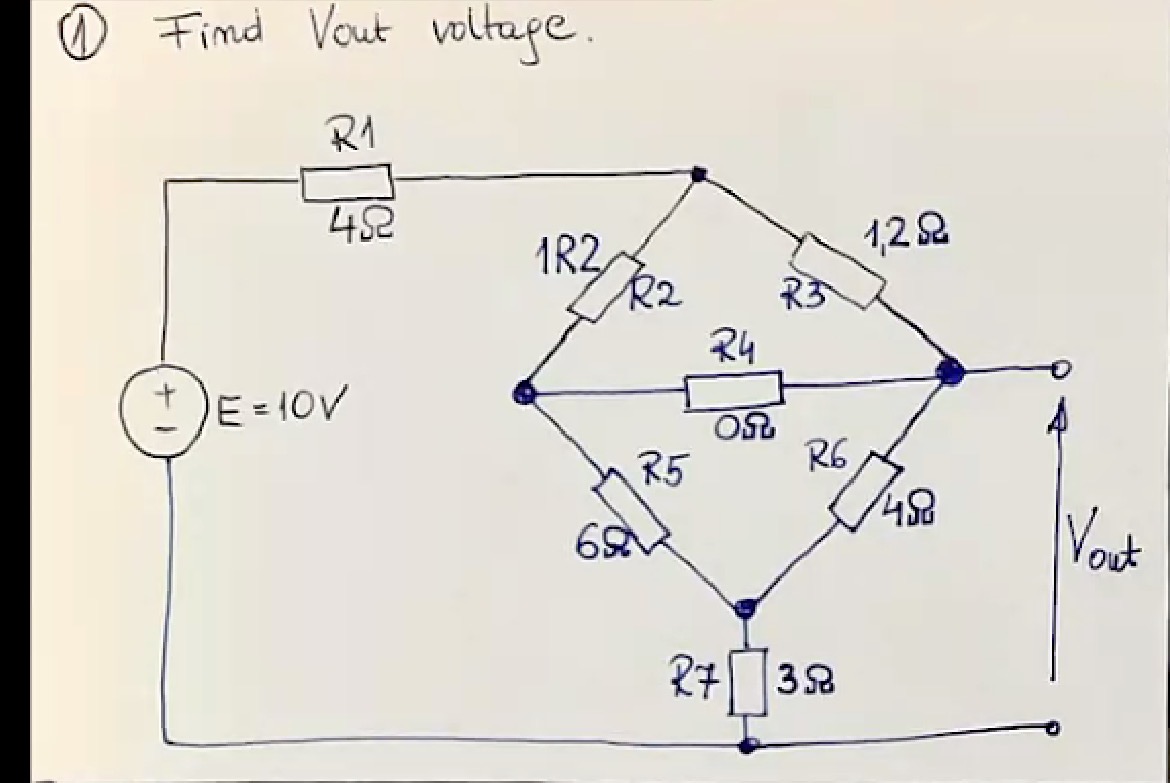 ① Find Vout voltage.
R1
4Ω
1R2
R2
1,2Ω
R3
R4
0Ω
+
-
E=10V
R5
6Ω
R6
4Ω
Vout
R7
3Ω